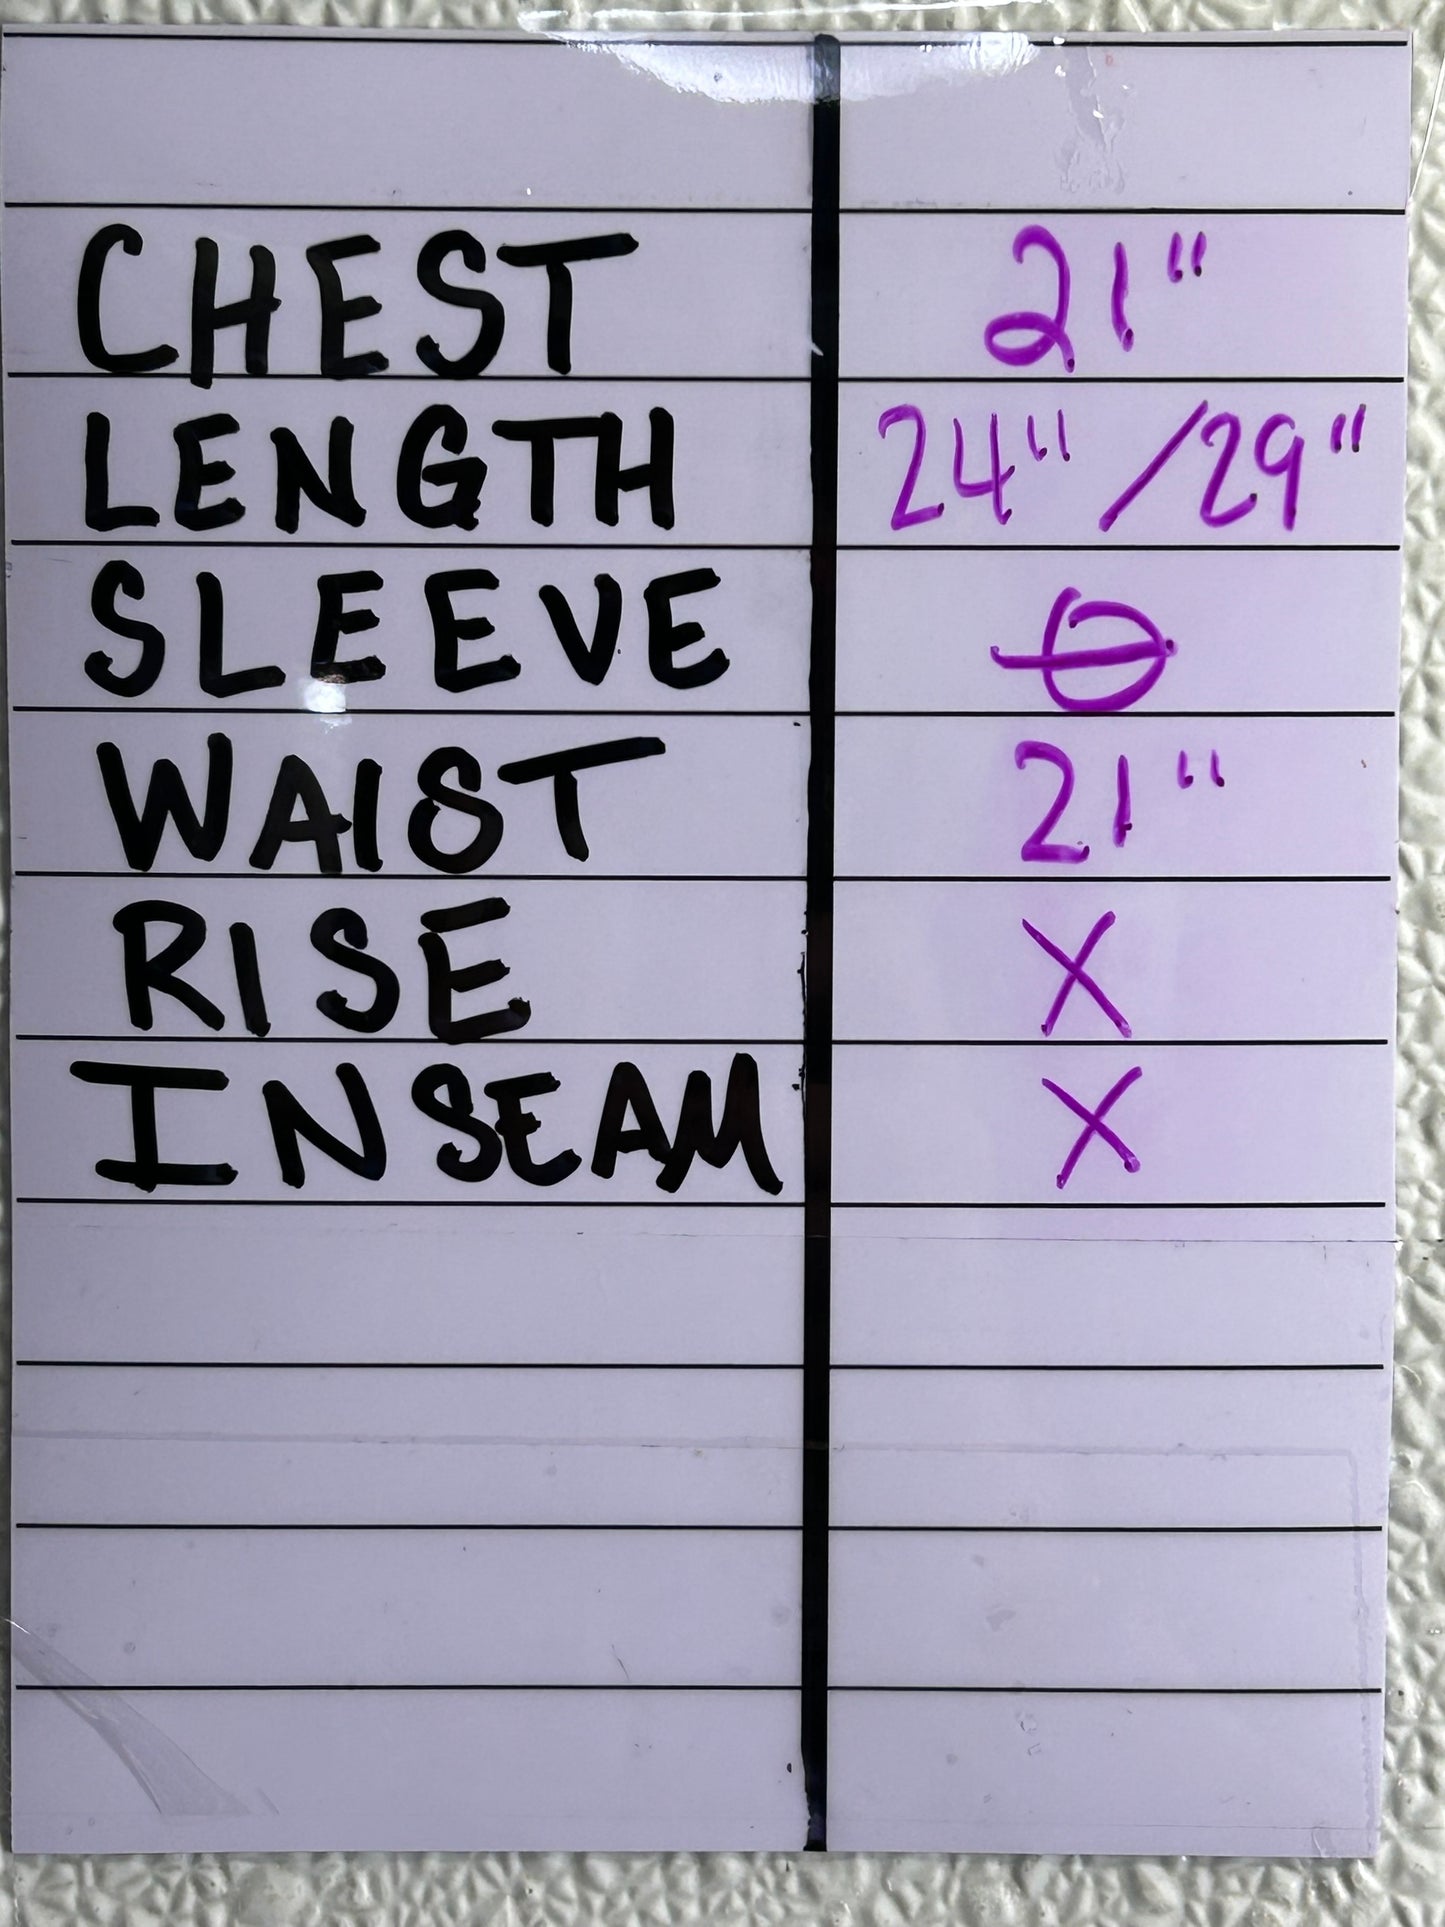 CHEST 21"
LENGTH 24" /29"
SLEEVE ⦵
WAIST 21"
RISE X
INSEAM X